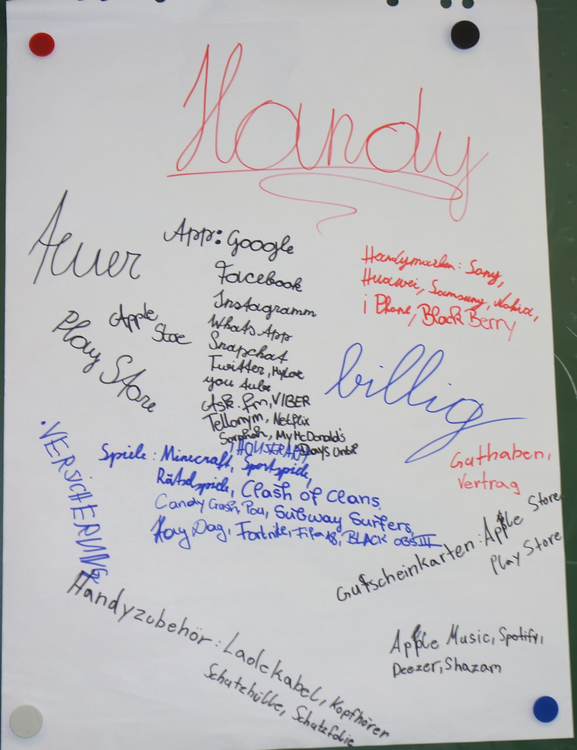 Handy
Teuer
App: Google
Facebook
Instagramm
WhatsApp
Snapchat
Twitter,
you tube
Ask.fm, VIBER
Tellonym, Netflix
MyMcDonald's
Handymarken: Sony,
Huawei, Samsung, Nokia,
iPhone, Black Berry
Apple
Stoe
Play Store
billig
Guthaben,
Vertrag
• VERSICHERUNG
Spiele: Minecraft, Sportspiele,
Rätselspiele, Clash of Clans,
Candy Crash, Pou, Subway Surfers,
Hay Dag, Fortnite, Fifa 18, BLACK OBS III
Gutscheinkarten: Apple Store
Play Store
Handyzubehör: Ladekabel, Kopfhörer
Schutzhülle, Schutzfolie
Apple Music, Spotify,
Deezer, Shazam